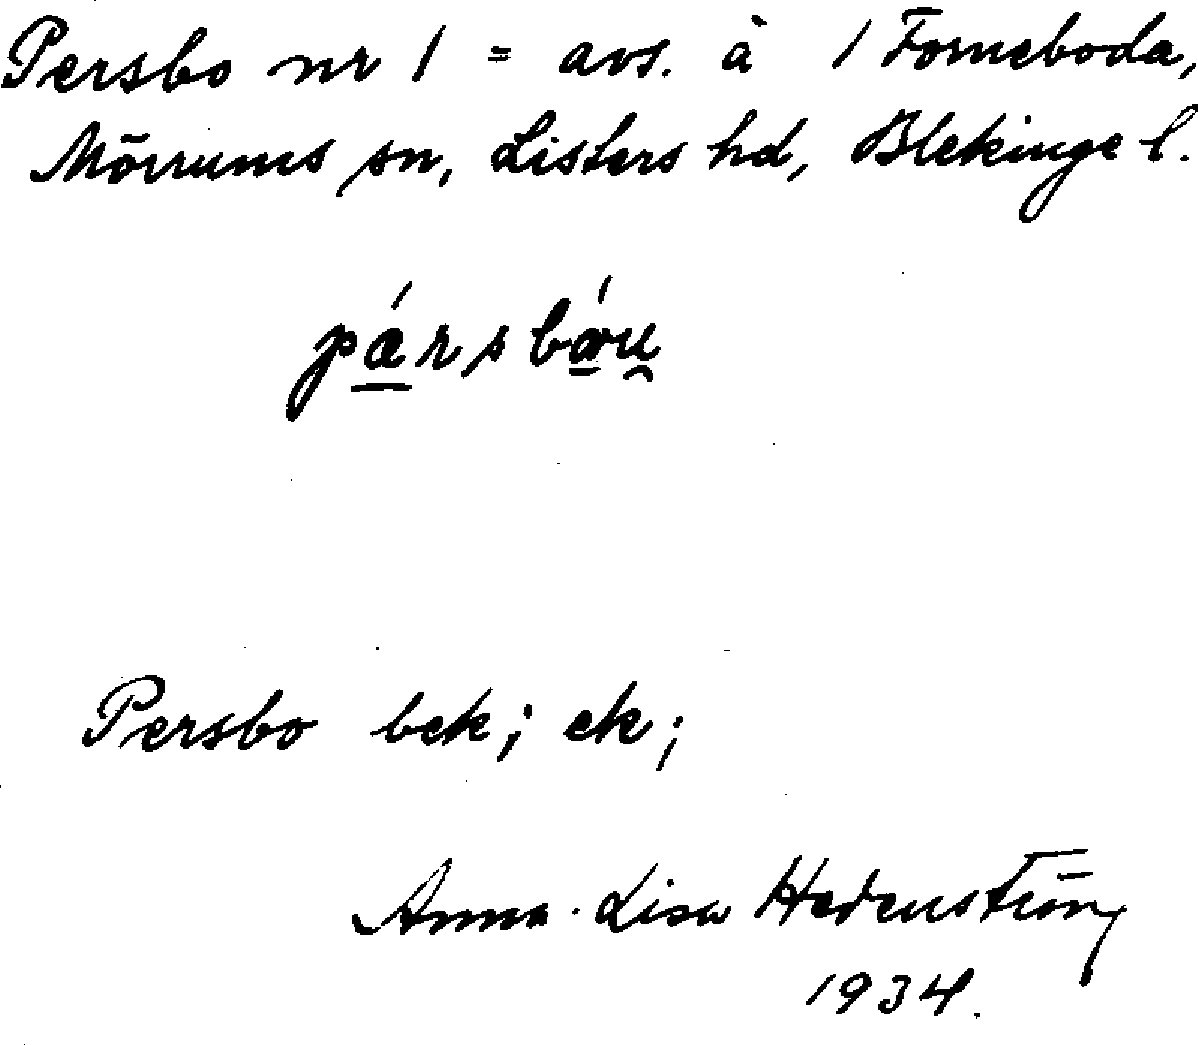 Persbo nr 1 = avs. å 1 Forneboda,
Mörrums sn, Listers hd, Blekinge l.
pǽrsbǿu̯
Persbo bek; ek;
Anna-Lisa Hedenström
1934.